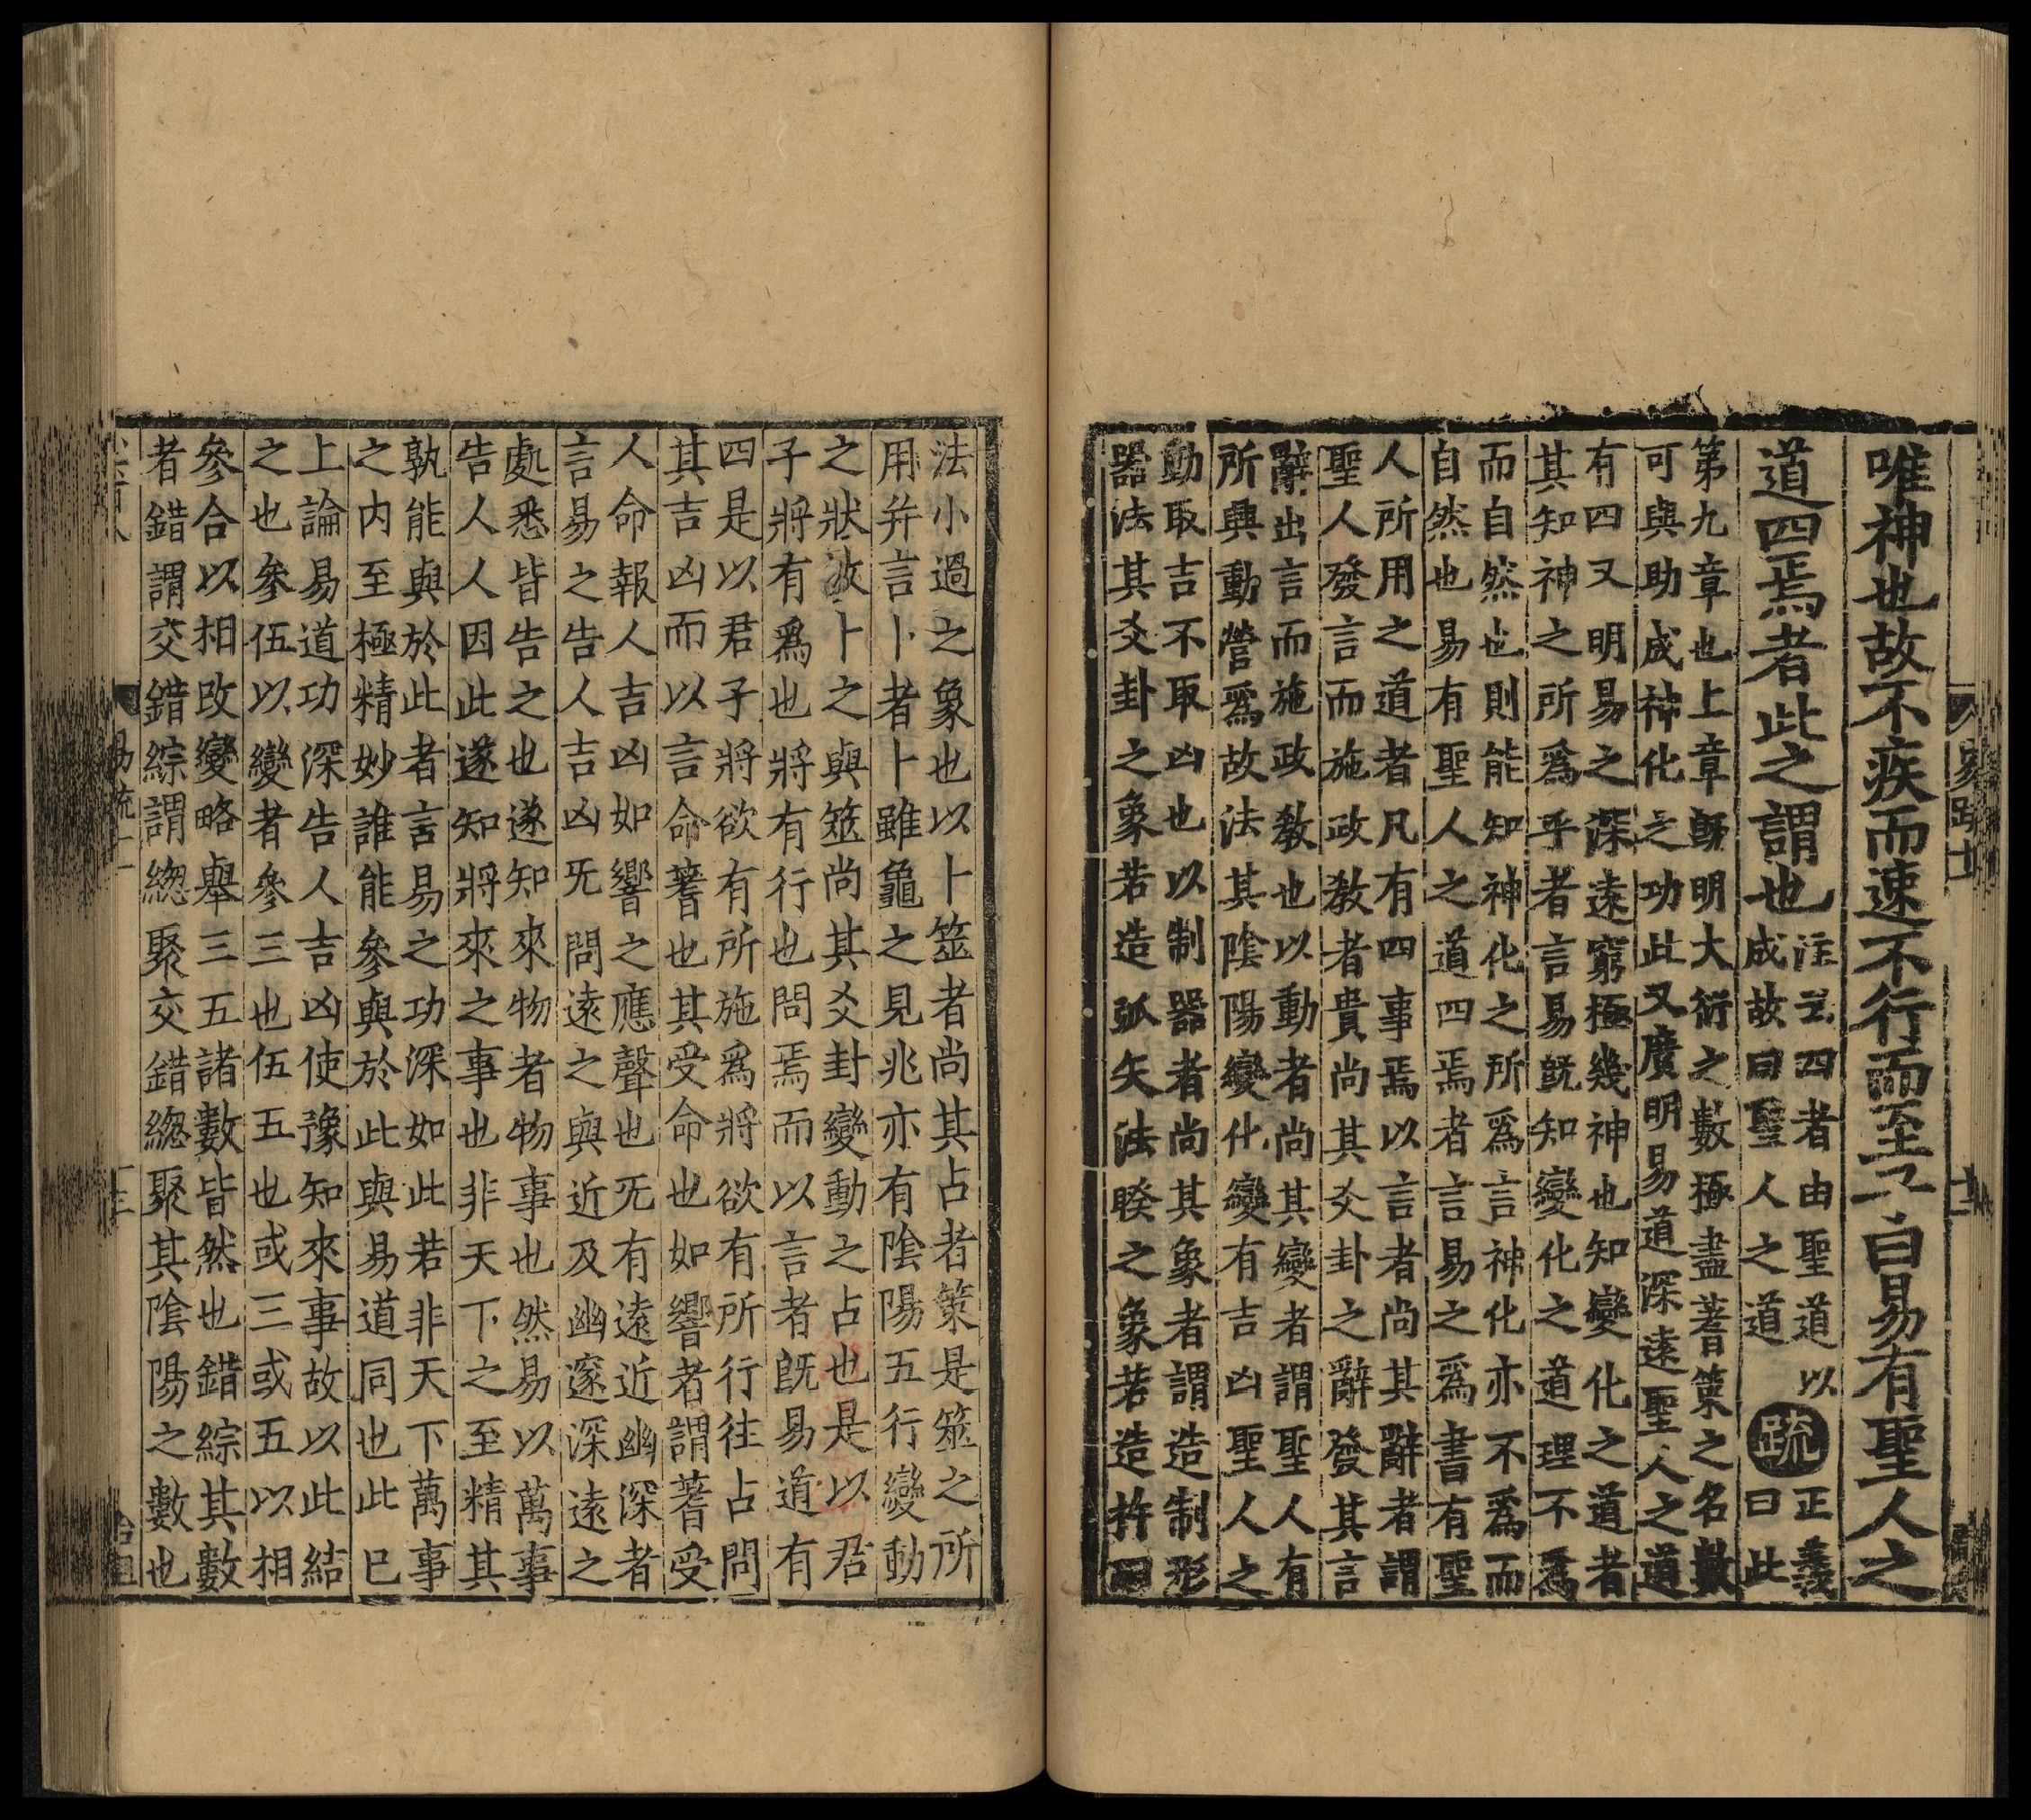 唯神也故不疾而速不行而至子曰易有聖人之
道四焉者此之謂也
注云四者由聖道以
成故曰聖人之道
疏
正義
曰此
第九章也上章既明大衍之數極盡蓍策之名數
可與助成神化之功此又廣明易道深遠聖人之道
有四又明易之深遠窮極幾神也知變化之道者
其知神之所爲乎者言易既知變化之道理不爲
而自然也則能知神化之所爲言神化亦不爲而
自然也易有聖人之道四焉者言易之爲書有聖
人所用之道者凡有四事焉以言者尚其辭者謂
聖人發言而施政教者貴尚其爻卦之辭發其言
辭出言而施政教也以動者尚其變者謂聖人有
所興動營爲故法其陰陽變化變有吉凶聖人之
動取吉不取凶也以制器者尚其象者謂造制形
器法其爻卦之象若造弧矢法睽之象若造杵臼
易疏十一
法小過之象也以卜筮者尚其占者策是筮之所
用并言卜者卜雖龜之見兆亦有陰陽五行變動
之狀故卜之與筮尚其爻卦變動之占也是以君
子將有爲也將有行也問焉而以言者旣易道有
四是以君子將欲有所施爲將欲有所行往占問
其吉凶而以言命蓍也其受命也如響者謂蓍受
人命報人吉凶如響之應聲也无有遠近幽深者
言易之告人吉凶无問遠之與近及幽邃深遠之
處悉皆告之也遂知來物者物事也然易以萬事
告人人因此遂知將來之事也非天下之至精其
孰能與於此者言易之功深如此若非天下萬事
之内至極精妙誰能參與於此與易道同也此已
上論易道功深告人吉凶使豫知來事故以此結
之也參伍以變者參三也伍五也或三或五以相
參合以相改變略舉三五諸數皆然也錯綜其數
者錯謂交錯綜謂緫聚交錯緫聚其陰陽之數也